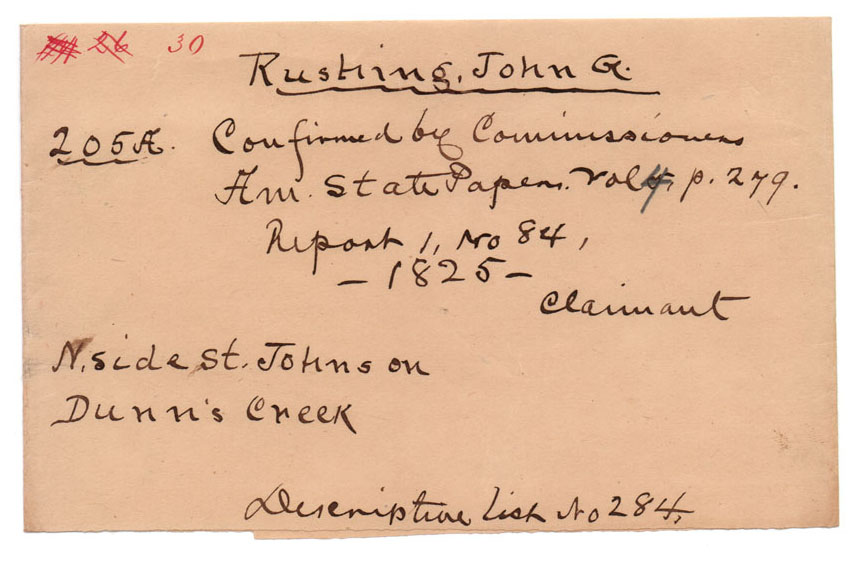 26 30
Rushing, John G.
205 A. Confirmed by Commissioners
Am. State Papers. Vol 4, p. 279.
Report 1, No 84,
- 1825 -
Claimant
N. side St. Johns on
Dunn's Creek
Descriptive List No 284,